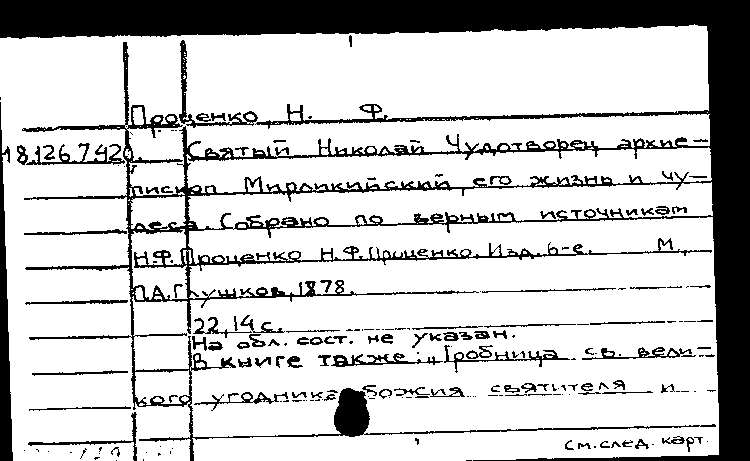 Проценко, Н. Ф.
18.126.7.420. Святый Николай Чудотворец архие-
пископ Мирликийский, его жизнь и чу-
деса. Собрано по верным источникам
Н.Ф. Проценко Н.Ф. Проценко. Изд. 6-е. М.,
П.А. Глушков, 1878.
22, 14 с.
На обл. сост. не указан.
В книге также: „Гробница св. вели-
кого угодника божия святителя и
См. след. карт.